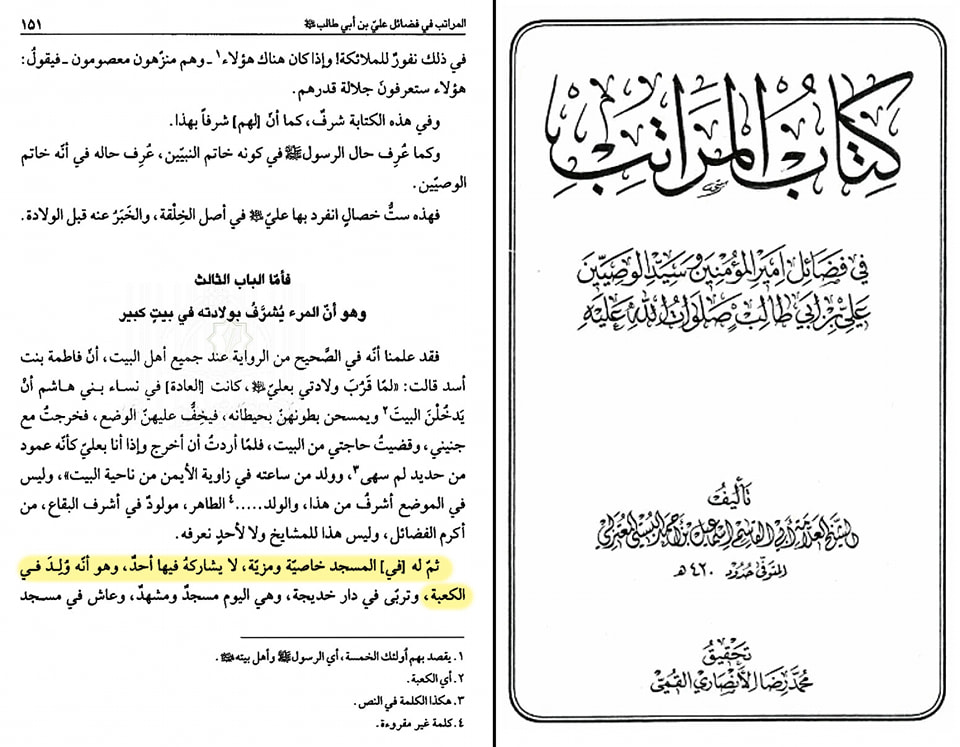 المراتب في فضائل عليّ بن أبي طالب ﷺ ١٥١
في ذلك نفورٌ للملائكة! وإذا كان هناك هؤلاء١ ـ وهم منزّهون معصومون ـ فيقولُ:
هؤلاء ستعرفونَ جلالة قدرهم.
وفي هذه الكتابة شرفٌ، كما أنّ [لهم] شرفاً بهذا.
وكما عُرِف حال الرسول ﷺ في كونه خاتم النبيّين، عُرِف حاله في أنّه خاتم
الوصيّين.
فهذه ستُّ خصالٍ انفرد بها عليّ ﷺ في أصل الخِلْقة، والخَبَرُ عنه قبل الولادة.
فأمّا الباب الثالث
وهو أنّ المرء يُشرَّفُ بولادته في بيتٍ كبير
فقد علمنا أنّه في الصَّحيح من الرواية عند جميع أهل البيت، أنّ فاطمة بنت
أسد قالت: «لمّا قَرُبَ ولادتي بعليّ ﷺ، كانت [العادة] في نساء بني هاشم أنْ
يَدخُلْنَ البيتَ٢ ويمسحن بطونهُنَ بحيطانه، فيخِفُّ عليهنّ الوضع، فخرجتُ مع
جنيني، وقضيتُ حاجتي من البيت، فلمّا أردتُ أن أخرج وإذا أنا بعليّ كأنّه عمود
من حديد لم سهى٣، وولد من ساعته في زاوية الأيمن من ناحية البيت»، وليس
في الموضع أشرفُ من هذا، والولد.....٤ الطاهر، مولودٌ في أشرف البقاع، من
أكرم الفضائل، وليس هذا للمشايخ ولا لأحدٍ نعرفه.
ثمّ له [في] المسجد خاصيّة ومزيّة، لا يشاركهُ فيها أحدٌ، وهو أنّه وُلِدَ في
الكعبة، وتربّى في دار خديجة، وهي اليوم مسجدٌ ومشهدٌ، وعاش في مسجد
١. يقصد بهم أولئك الخمسة، أي الرسول ﷺ وأهل بيته ﷺ.
٢. أي الكعبة.
٣. هكذا الكلمة في النص.
٤. كلمة غير مقروءة.
كتاب المراتب
في فضائل أمير المؤمنين وسيد الوصيين
علي بن أبي طالب صلوات الله عليه
تأليف
الشيخ العلامة أبي القاسم إسماعيل بن أحمد البستي المعتزلي
المتوفى حدود ٤٢٠ هـ
تحقيق
محمد رضا الأنصاري القمي